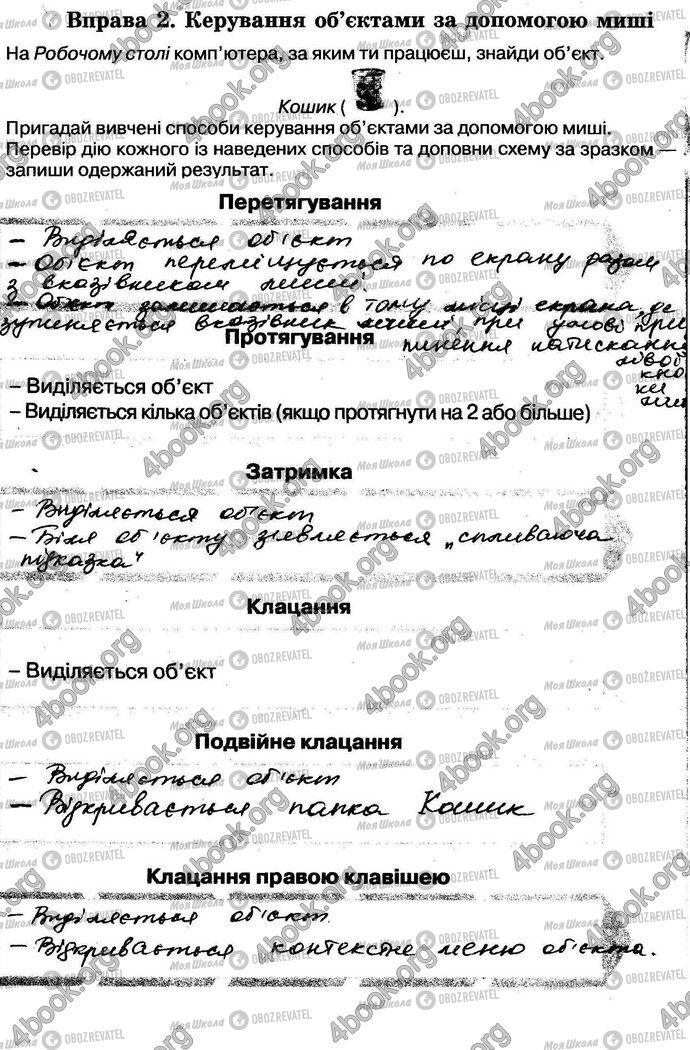 Вправа 2. Керування об’єктами за допомогою миші
На Робочому столі комп’ютера, за яким ти працюєш, знайди об’єкт
Кошик ( ).
Пригадай вивчені способи керування об’єктами за допомогою миші.
Перевір дію кожного із наведених способів та доповни схему за зразком —
запиши одержаний результат.
Перетягування
– Виділяється об'єкт
– Об'єкт переміщується по екрану разом
з вказівником миші.
– Об'єкт залишається в тому місці екрана, де
зупиняється вказівник миші при умові при
Протягування
пинення натискання
лівої
кно
ки
миші
– Виділяється об’єкт
– Виділяється кілька об’єктів (якщо протягнути на 2 або більше)
Затримка
– Виділяється об'єкт
– Біля об'єкту з'являється „спливаюча
підказка“
Клацання
– Виділяється об’єкт
Подвійне клацання
– Виділяється об'єкт
– Відкривається папка Кошик
Клацання правою клавішею
– Виділяється об'єкт
– Відкривається контекстне меню об'єкта.